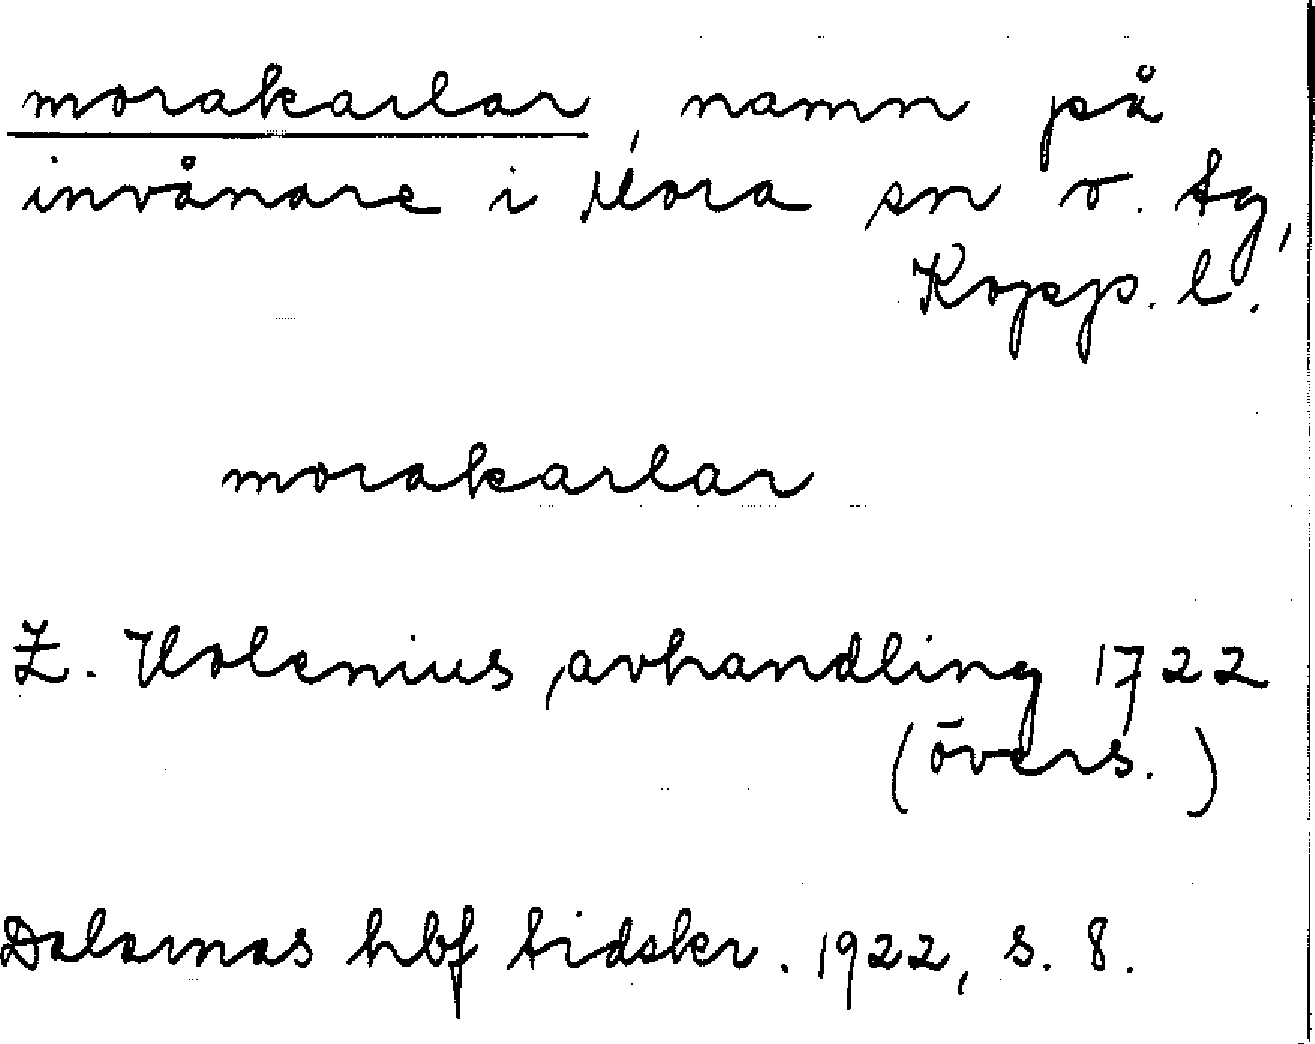 morakarlar, namn på
invånare i Mora sn o. tg,
Kopp. l.
morakarlar
Z. Holenius, avhandling 1722
(övers.)
Dalarnas hbf tidskr. 1922, s. 8.